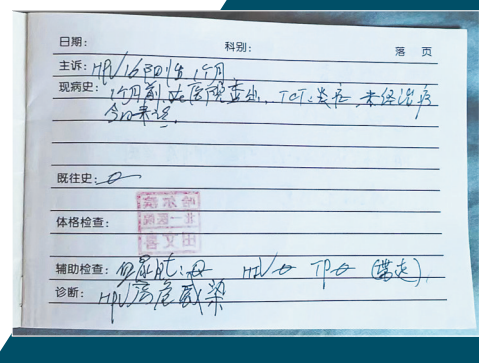 日期： 科别： 落 页
主诉：HPV16阳性1个月
现病史：1个月前 医院查出，TCT：炎症，未经治疗
今日来诊.
既往史：
体格检查：
辅助检查： HIV TP
诊断：HPV高危感染